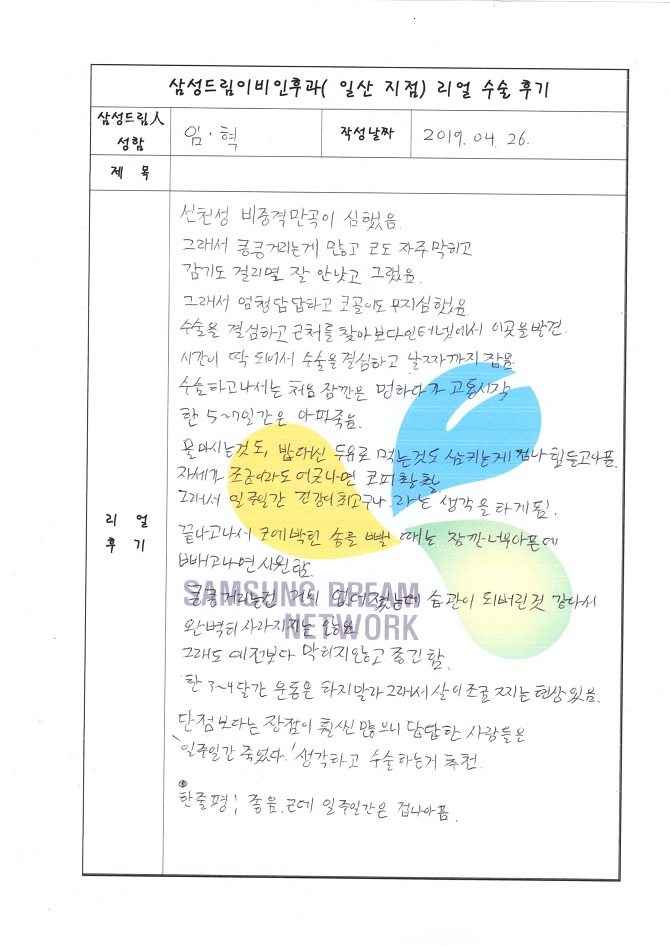 삼성드림이비인후과( 일산 지점) 리얼 수술 후기
삼성드림人 성함 임·혁 작성날짜 2019. 04. 26.
제 목
리 얼 후 기
선천성 비중격만곡이 심했음.
그래서 킁킁거리는게 많고 코도 자주막히고
감기도 걸리면 잘 안낫고 그랬음.
그래서 엄청답답하고 코골이도 무지심했음
수술을 결심하고 근처를 찾아보다인터넷에서 이곳을발견.
시간이 딱 되어서 수술을결심하고 날짜까지 잡음
수술하고나서는 처음 잠깐은 멍하다가 고통시작
한 5~7일간은 아파죽음.
물마시는것도, 밥대신 두유로 먹는것도 삼키는게 겁나 힘들고아픔.
자세가 조금이라도 어긋나면 코피촬촬
그래서 일주일간 건강이최고구나. 라는 생각을 하게됨.
끝나고나서 코에박힌 솜을 뺄 때는 잠깐너무아픈데
빼고나면시원함.
킁킁거리는건 거의 없어졌는데 습관이 되버린것 같아서
완벽히사라지지는 않음
그래도 예전보다 막히지않고 좋긴함.
한 3~4달간 운동은 하지말라그래서살이조금찌는 현상있음.
단점보다는 장점이 훨씬 많으니 답답한 사람들은
'일주일간죽었다.' 생각하고 수술하는거 추천.
한줄평; 좋음.근데 일주일간은 겁나아픔.
SAMSUNG DREAM
NETWORK